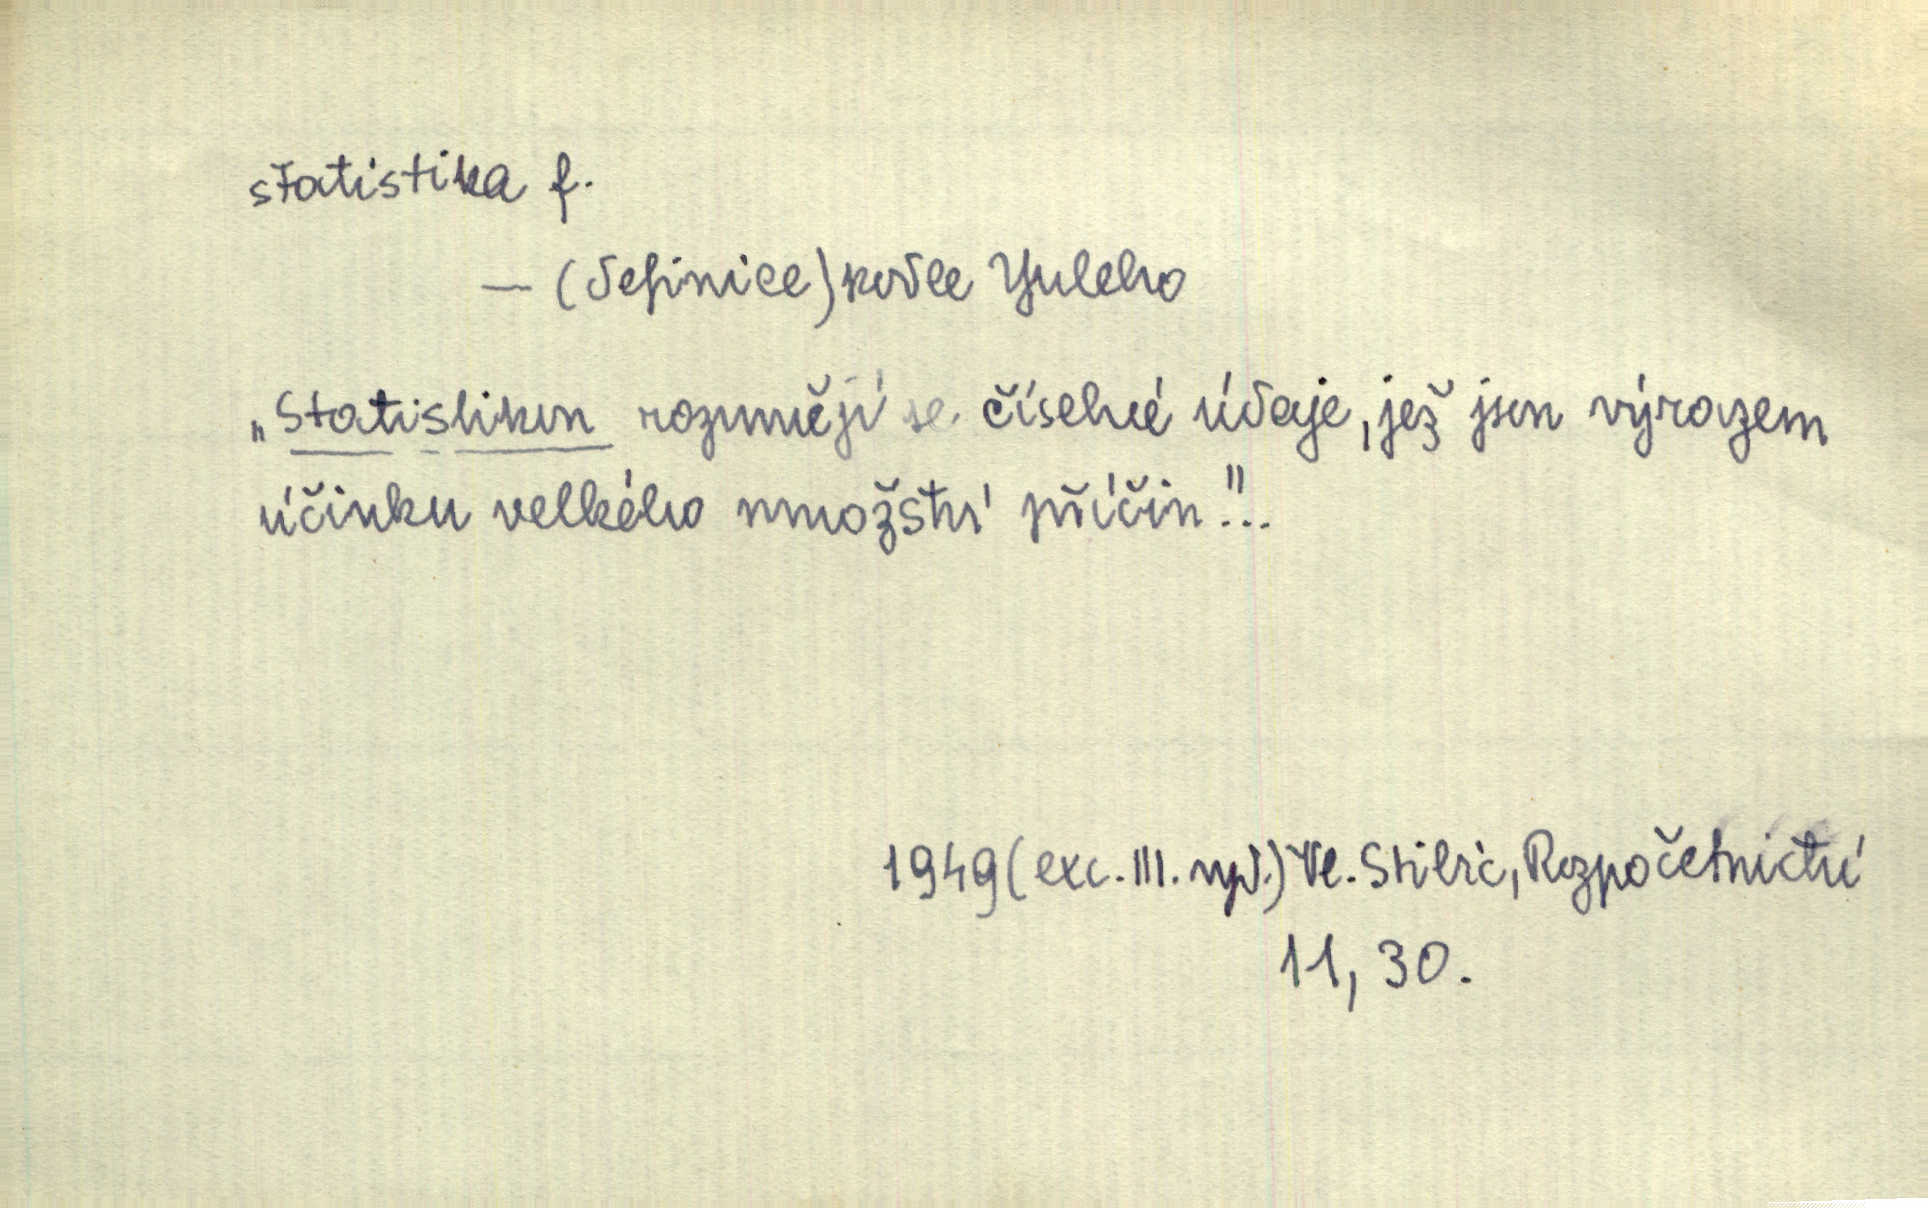 statistika f.
— (definice) podle Yuleho
„Statistikou rozumějí se číselné údaje, jež jsou výrazem
účinku velkého množství příčin"...
1949 (exc. III. vyd.) Vl. Stibic, Rozpočetnictví
11, 30.